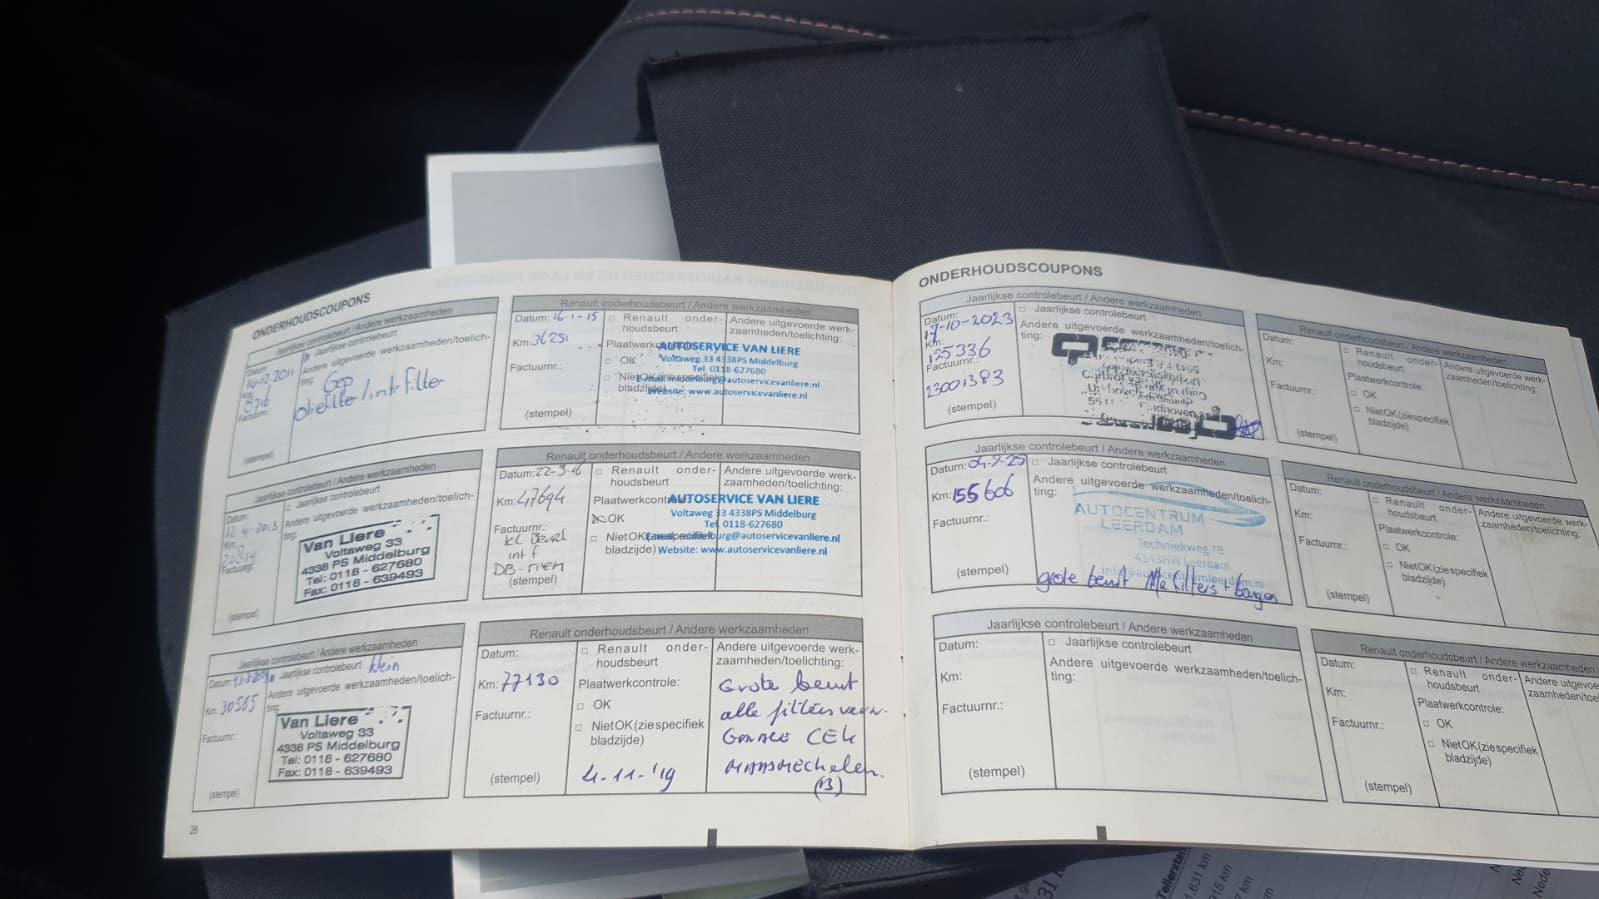 ONDERHOUDSCOUPONS
Jaarlijkse controlebeurt / Andere werkzaamheden
Datum:
14-12-2011
Km:
Factuurnr.:
Jaarlijkse controlebeurt
Andere uitgevoerde werkzaamheden/toelich-
ting:
oliefilter / int filter
(stempel)
Jaarlijkse controlebeurt / Andere werkzaamheden
Datum:
Km:
Factuurnr.:
Jaarlijkse controlebeurt
Andere uitgevoerde werkzaamheden/toelich-
ting:
Van Liere
Voltaweg 33
4338 PS Middelburg
Tel: 0118 - 627680
Fax: 0118 - 639493
(stempel)
Jaarlijkse controlebeurt / Andere werkzaamheden
Datum:
Jaarlijkse controlebeurt klein
Km: 30565
Andere uitgevoerde werkzaamheden/toelich-
ting:
Factuurnr.:
Van Liere
Voltaweg 33
4338 PS Middelburg
Tel: 0118 - 627680
Fax: 0118 - 639493
(stempel)
26
Renault onderhoudsbeurt / Andere werkzaamheden
Datum: 16-1-15
Km: 36251
Factuurnr.:
(stempel)
Renault onder-
houdsbeurt
Plaatwerkcontrole:
OK
NietOK(ziespecifiek
bladzijde)
Andere uitgevoerde werk-
zaamheden/toelichting:
AUTOSERVICE VAN LIERE
Voltaweg 33 4338PS Middelburg
Tel. 0118-627680
E-mail: middelburg@autoservicevanliere.nl
Website: www.autoservicevanliere.nl
Renault onderhoudsbeurt / Andere werkzaamheden
Datum: 22-3-16
Km: 47694
Factuurnr.:
int f
(stempel)
Renault onder-
houdsbeurt
Plaatwerkcontrole:
OK
NietOK(ziespecifiek
bladzijde)
Andere uitgevoerde werk-
zaamheden/toelichting:
AUTOSERVICE VAN LIERE
Voltaweg 33 4338PS Middelburg
Tel. 0118-627680
E-mail: middelburg@autoservicevanliere.nl
Website: www.autoservicevanliere.nl
Renault onderhoudsbeurt / Andere werkzaamheden
Datum:
Km: 77130
Factuurnr.:
(stempel)
Renault onder-
houdsbeurt
Plaatwerkcontrole:
OK
NietOK(ziespecifiek
bladzijde)
4-11-'19
Andere uitgevoerde werk-
zaamheden/toelichting:
Grote beurt
alle filters verv.
Garage CEK
Maasmechelen.
(B)
ONDERHOUDSCOUPONS
Jaarlijkse controlebeurt / Andere werkzaamheden
Datum:
17-10-2023
Km:
125336
Factuurnr.:
23001383
(stempel)
Jaarlijkse controlebeurt
Andere uitgevoerde werkzaamheden/toelich-
ting:
Jaarlijkse controlebeurt / Andere werkzaamheden
Datum: 04-9-25
Km: 155606
Factuurnr.:
(stempel)
Jaarlijkse controlebeurt
Andere uitgevoerde werkzaamheden/toelich-
ting:
AUTOCENTRUM
LEERDAM
Techniekweg 7B
Leerdam
info@autocentrumleerdam.nl
grote beurt Alle filters +
Jaarlijkse controlebeurt / Andere werkzaamheden
Datum:
Km:
Factuurnr.:
(stempel)
Jaarlijkse controlebeurt
Andere uitgevoerde werkzaamheden/toelich-
ting:
Renault onderhoudsbeurt / Andere werkzaamheden
Datum:
Km:
Factuurnr.:
(stempel)
Renault onder-
houdsbeurt
Plaatwerkcontrole:
OK
NietOK(ziespecifiek
bladzijde)
Andere uitgevoerde werk-
zaamheden/toelichting:
Renault onderhoudsbeurt / Andere werkzaamheden
Datum:
Km:
Factuurnr.:
(stempel)
Renault onder-
houdsbeurt
Plaatwerkcontrole:
OK
NietOK(ziespecifiek
bladzijde)
Andere uitgevoerde werk-
zaamheden/toelichting:
Renault onderhoudsbeurt / Andere werkzaamheden
Datum:
Km:
Factuurnr.:
(stempel)
Renault onder-
houdsbeurt
Plaatwerkcontrole:
OK
NietOK(ziespecifiek
bladzijde)
Andere uitgevoerde
zaamheden/toelichting:
Tellerstand